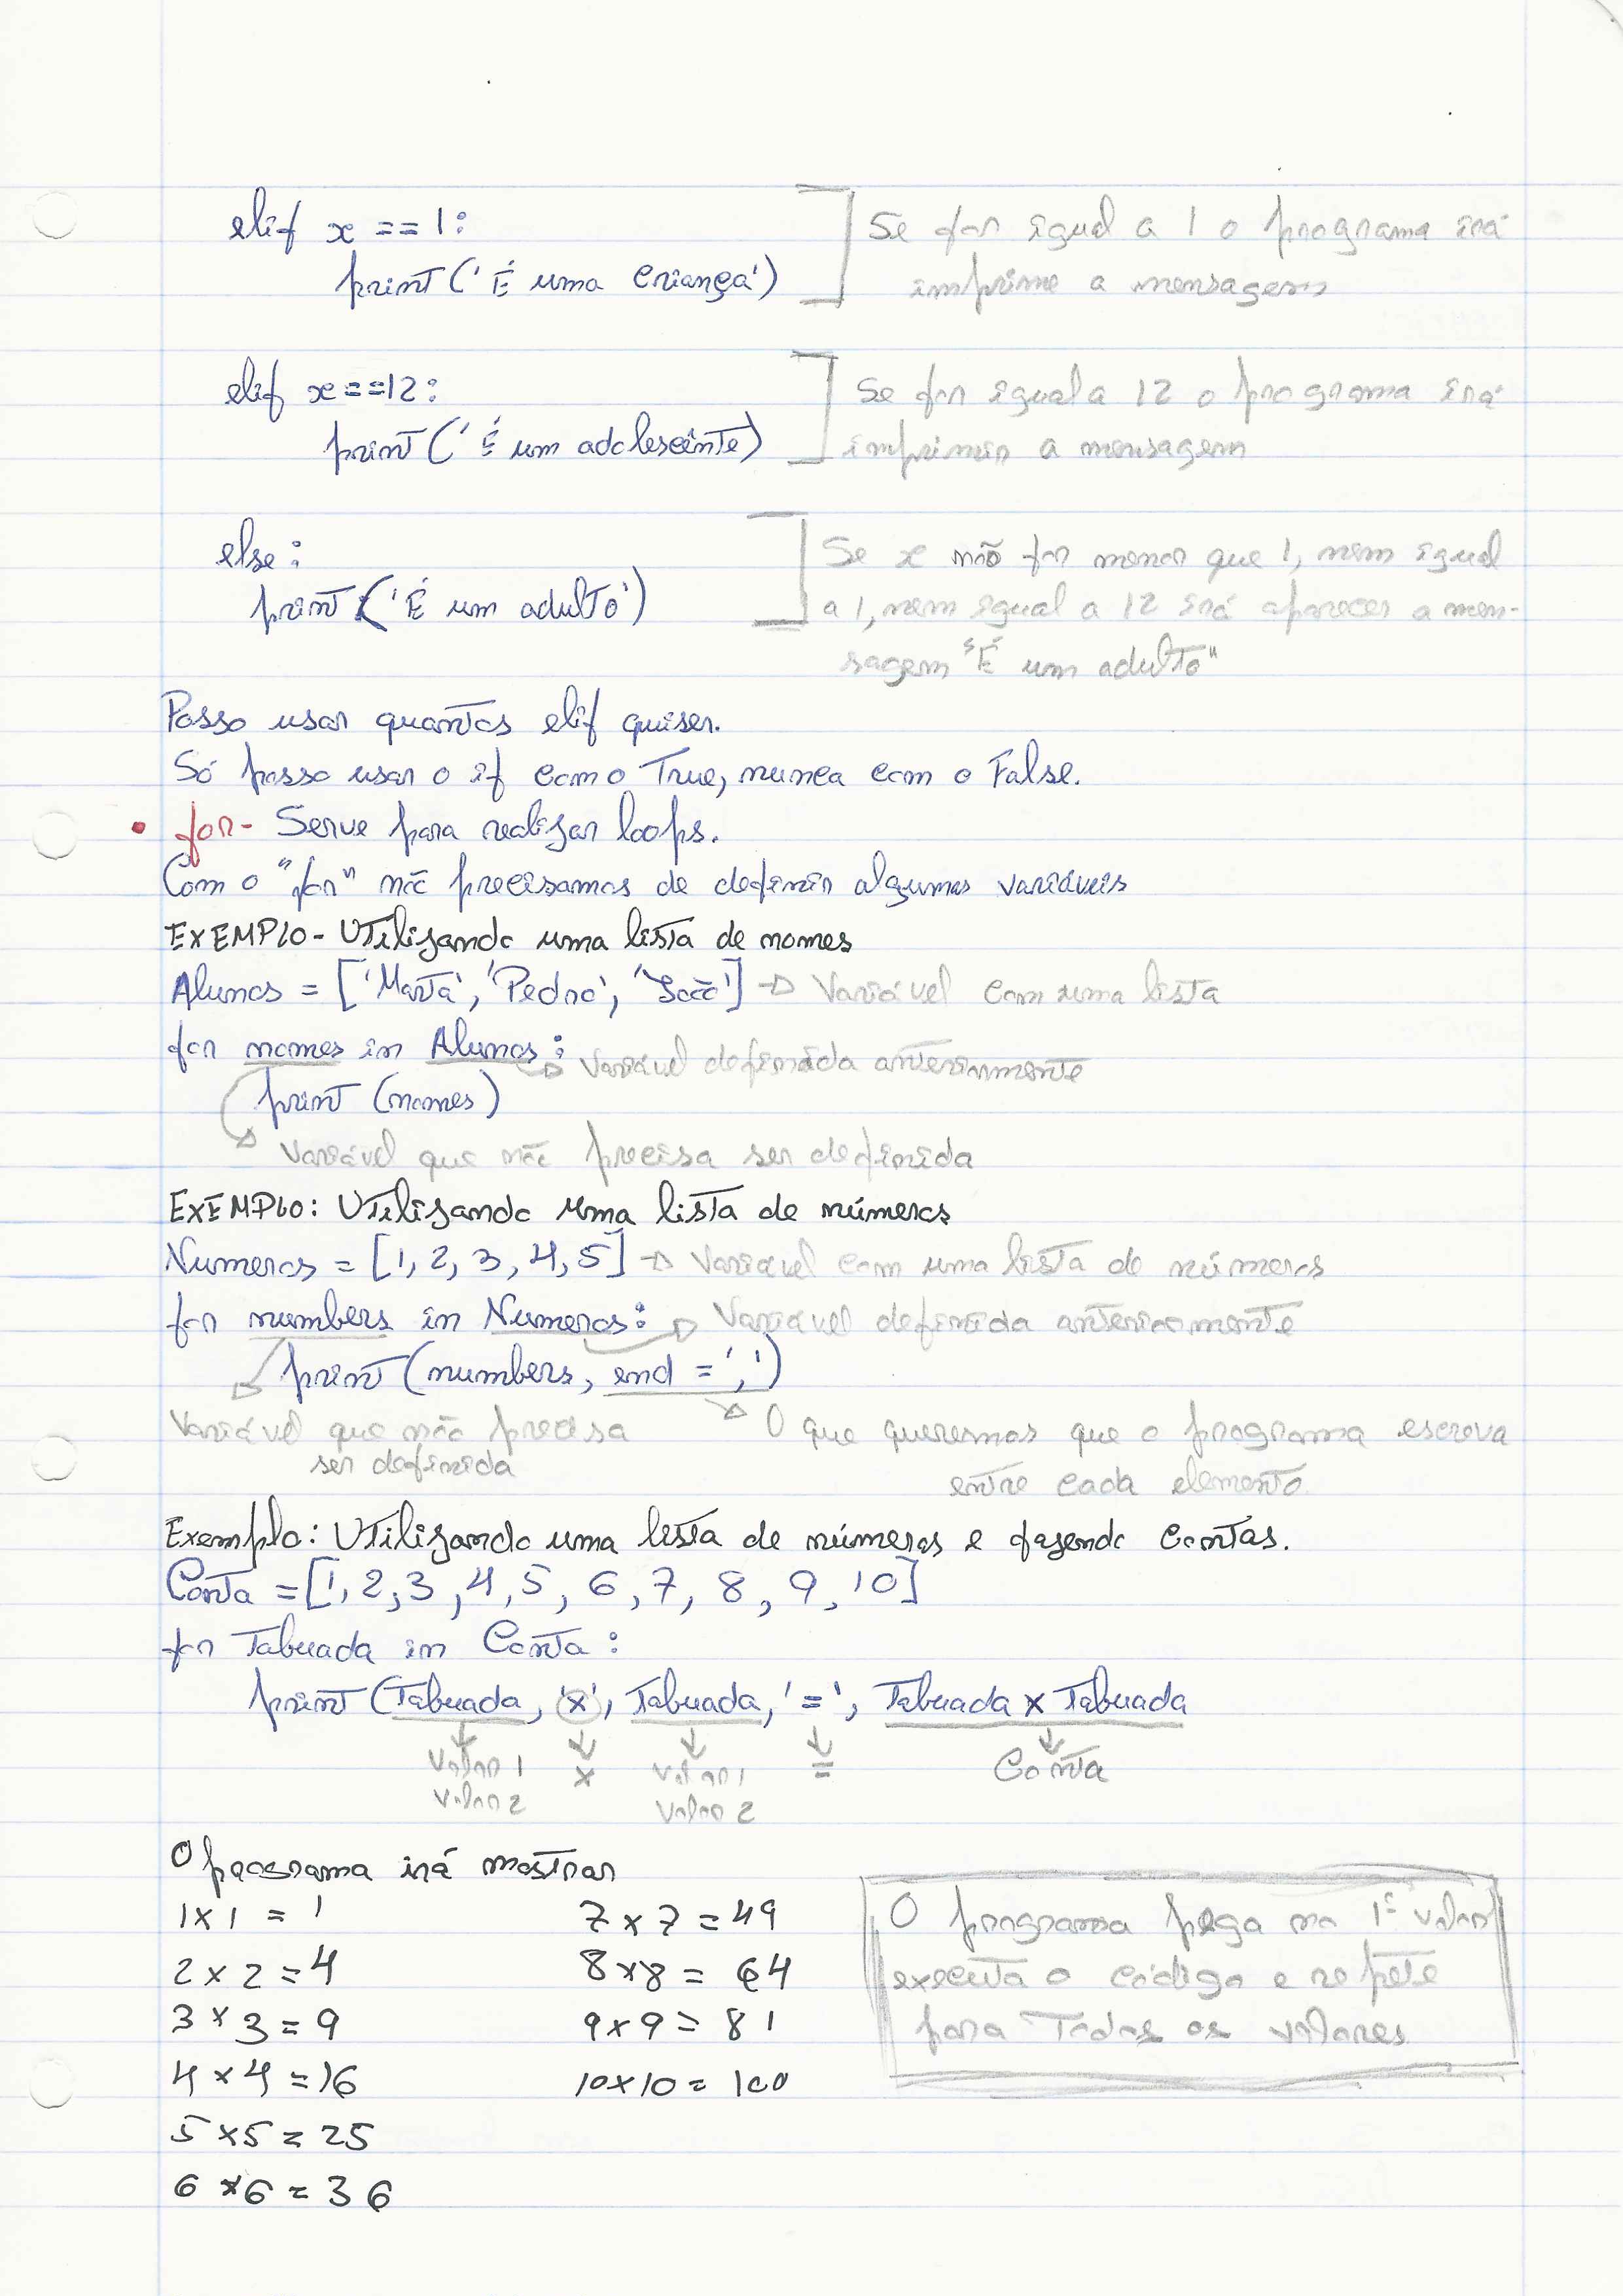 elif x == 1:
Se for igual a 1 o programa irá
print(' É uma criança')
imprime a mensagem
elif x==12:
Se for igual a 12 o programa irá
print(' É um adolescente)
imprimir a mensagem
else:
Se x não for menor que 1, nem igual
print('É um adulto')
a 1, nem igual a 12 irá aparecer a men-
sagem "É um adulto"
Posso usar quantos elif quiser.
Só posso usar o if com o True, nunca com o False.
• for - Serve para realizar loops.
Com o "for" não precisamos de definir algumas variáveis
EXEMPLO - Utilizando uma lista de nomes
Alunos = ['Marta', 'Pedro', 'João'] → Variável com uma lista
for nomes in Alunos: → Variável definida anteriormente
print (nomes)
→ Variável que não precisa ser definida
EXEMPLO: Utilizando uma lista de números
Numeros = [1, 2, 3, 4, 5] → Variavel com uma lista de números
for numbers in Numeros: → Variável definida anteriormente
print (numbers, end = ',')
Variável que não precisa
ser definida
→ O que queremos que o programa escreva
entre cada elemento
Exemplo: Utilizando uma lista de números e fazendo contas.
Conta = [1, 2, 3, 4, 5, 6, 7, 8, 9, 10]
for Tabuada in Conta:
print (Tabuada, 'x', Tabuada, '=', Tabuada x Tabuada
↓ ↓ ↓ ↓ ↓
Valor 1 x Valor 1 = Conta
Valor 2 Valor 2
O programa irá mostrar
1 x 1 = 1
2 x 2 = 4
3 x 3 = 9
4 x 4 = 16
5 x 5 = 25
6 x 6 = 36
7 x 7 = 49
8 x 8 = 64
9 x 9 = 81
10 x 10 = 100
O programa pega no 1º valor
executa o código e repete
para Todos os valores